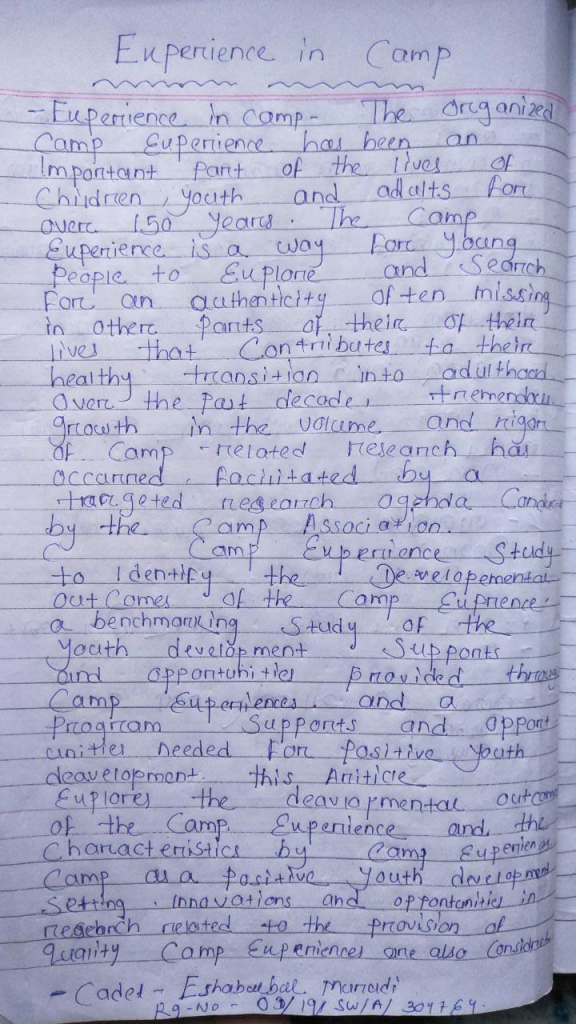 Euperience in Camp
- Euperience in camp - The Organized
Camp Euperience has been an
Important Part of the lives of
Children, youth and adults for
over 150 years. The Camp
Euperience is a way For young
People to Euplore and Search
For an authenticity often missing
in other Parts of their of their
lives that Contributes to their
healthy transition into adulthood
Over the Past decade, tremendou
growth in the volume and rigor
of Camp - related research has
occurred, facilitated by a
targeted research agenda
by the Camp Association.
C Camp Euperience Study
to Identify the Developemental
Out Comes of the Camp Euprience.
a benchmarking Study of the
youth development Supports
and opportunities Provided through
Camp Euperiences. and a
Program Supports and opport
unities needed For Positive youth
deavelopment. this Ariticle
Euplores the deavlopmental outcom
of the Camp. Euperience and, the
Characteristics by Camp Euperien
Camp as a Positive youth development
Setting. Innovations and opportunities in
research related to the provision of
quality Camp Euperiences are also
- Cadet -
Rg-No - OD/19/SW/A/ 304764.